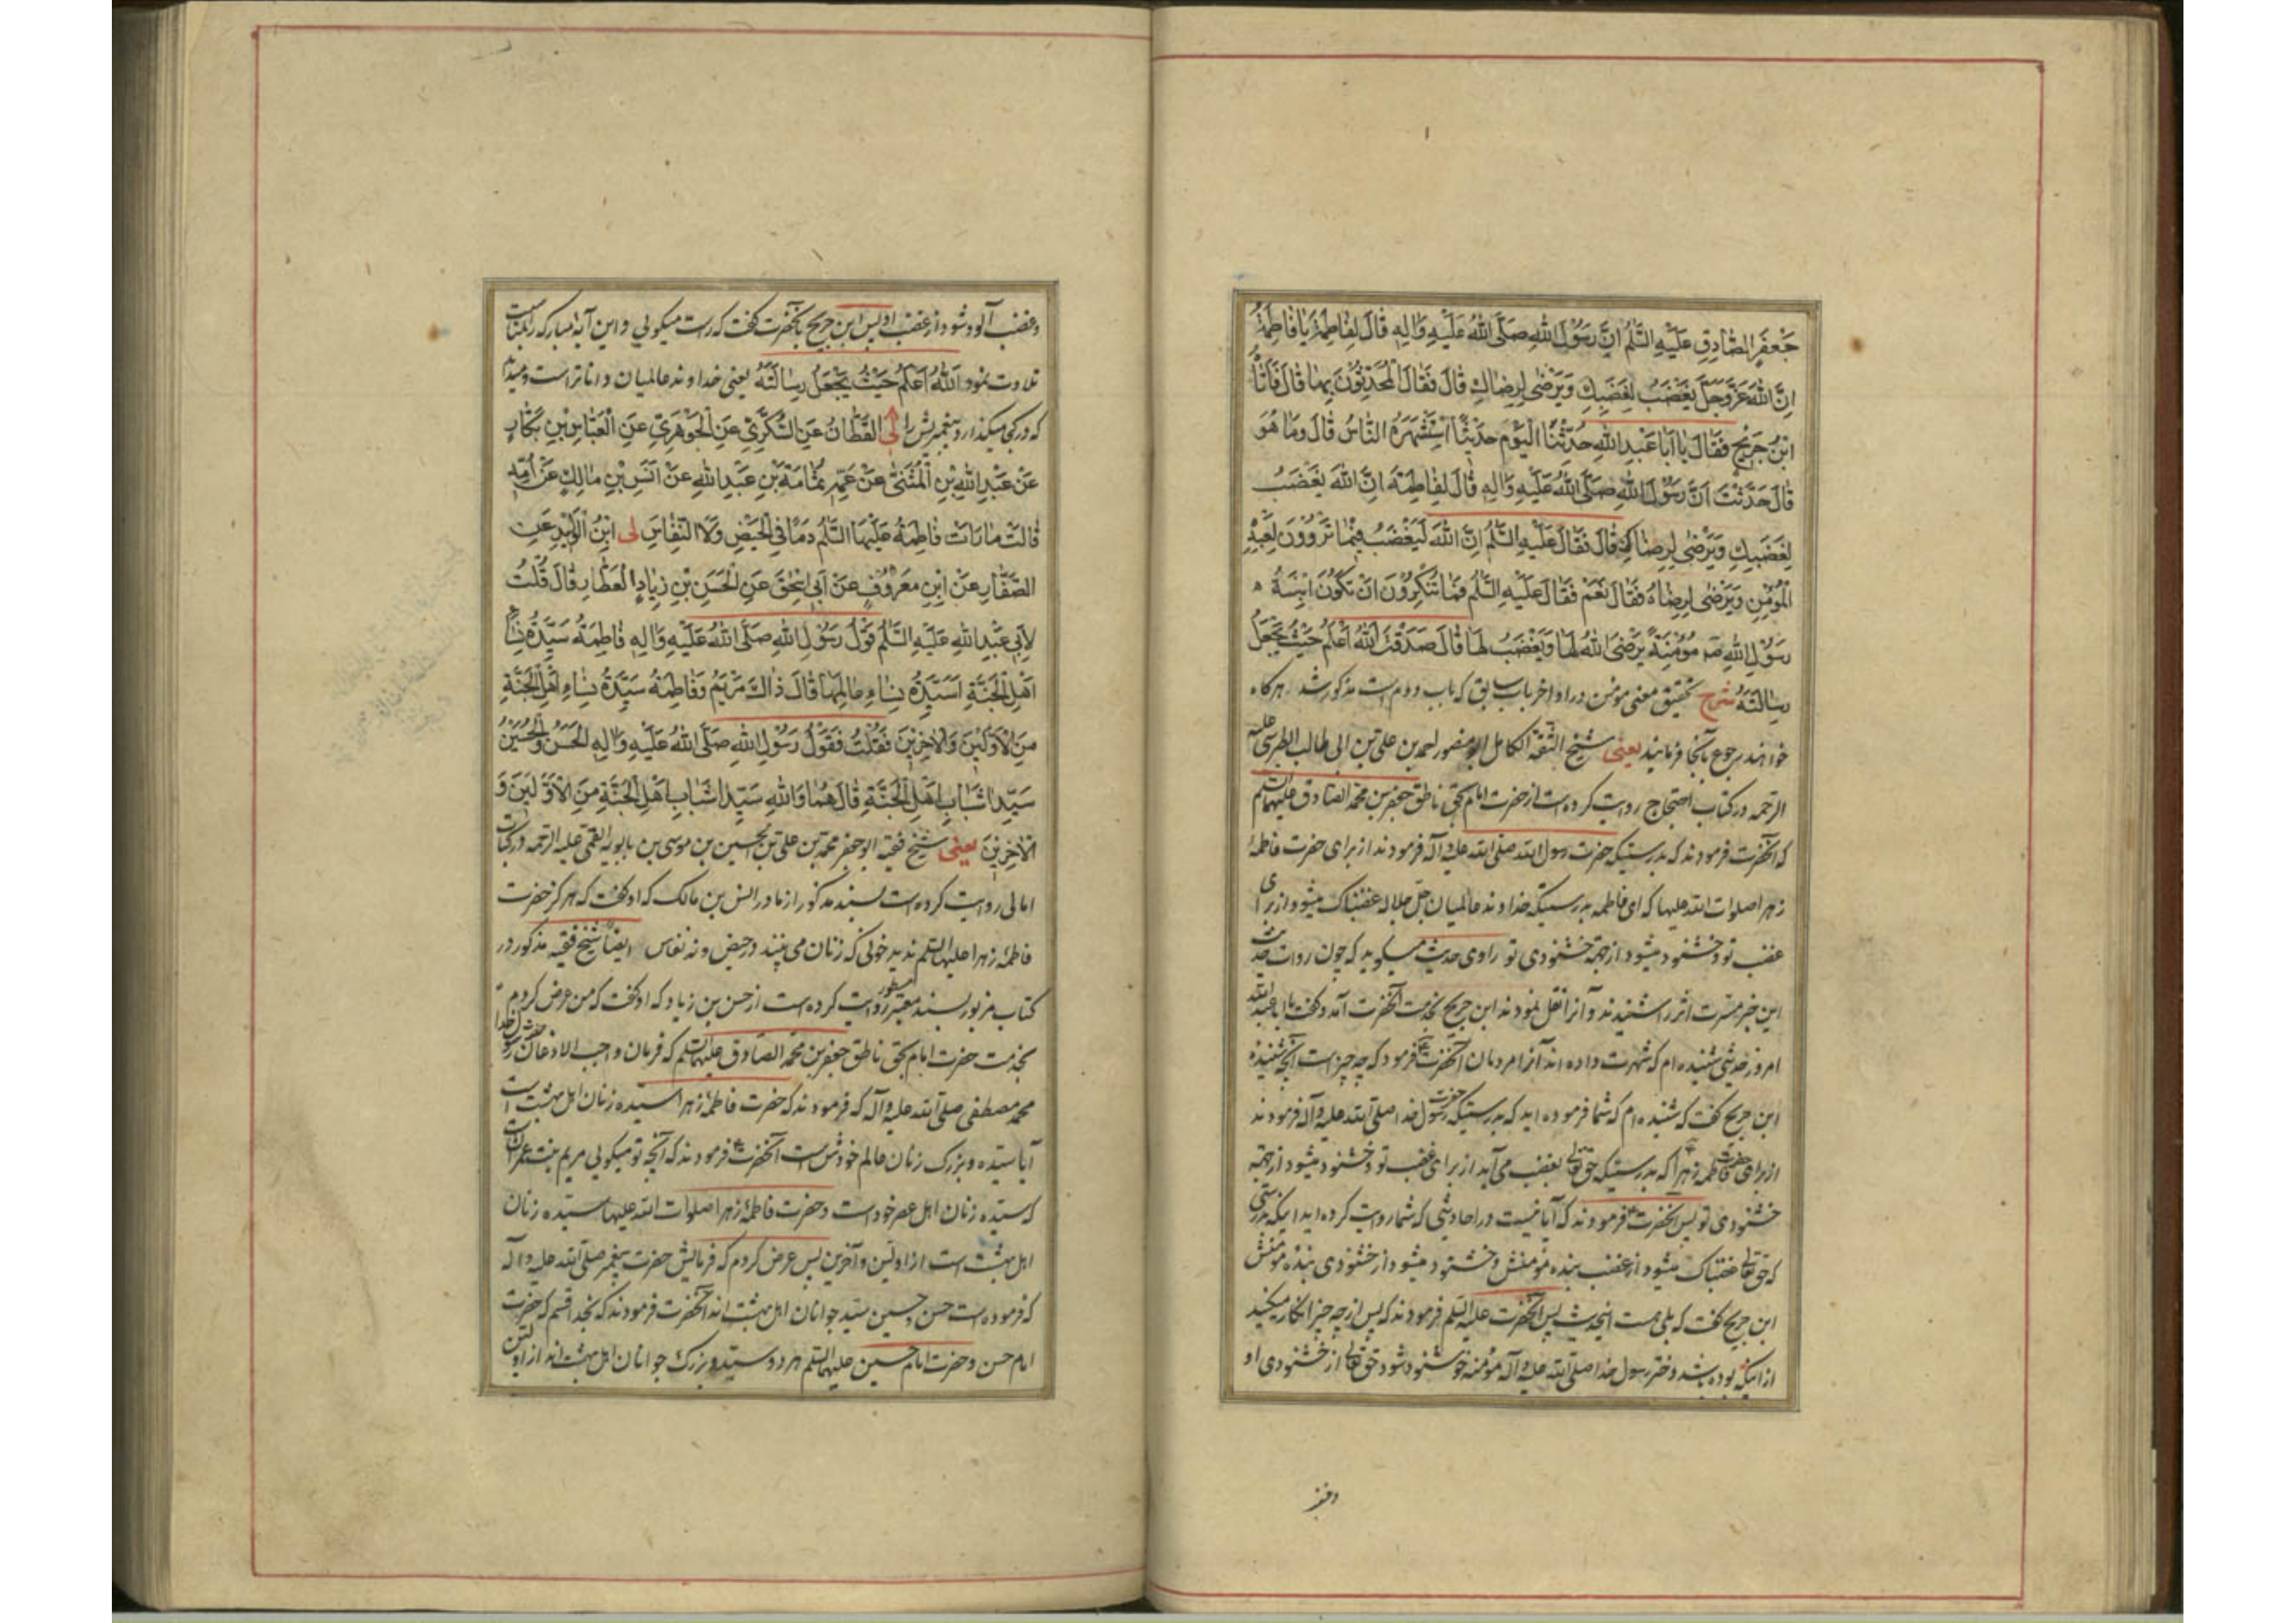 جَعْفَرٍ الصَّادِقِ عَلَيْهِ السَّلَمُ اِنَّ رَسُوْلَ اللهِ صَلَّى اللهُ عَلَيْهِ وَاٰلِهٖ قَالَ لِفَاطِمَةَ يَا فَاطِمَةُ
اِنَّ اللهَ عَزَّ وَجَلَّ يَغْضَبُ لِغَضَبِكِ وَيَرْضٰى لِرِضَاكِ قَالَ فَقَالَ الْمُحَدِّثُوْنَ بِهَا قَالَ فَاَتَاهُ
ابْنُ جَرِيْحٍ فَقَالَ يَا اَبَا عَبْدِ اللهِ حُدِّثْنَا الْيَوْمَ حَدِيْثًا اسْتَشْهَرَهُ النَّاسُ قَالَ وَمَا هُوَ
قَالَ حَدَّثْتَ اَنَّ رَسُوْلَ اللهِ صَلَّى اللهُ عَلَيْهِ وَاٰلِهٖ قَالَ لِفَاطِمَةَ اِنَّ اللهَ يَغْضَبُ
لِغَضَبِكِ وَيَرْضٰى لِرِضَاكِ قَالَ فَقَالَ عَلَيْهِ السَّلَمُ اِنَّ اللهَ لَيَغْضَبُ فِيْمَا تَرْوُوْنَ لِعَبْدِهِ
الْمُؤْمِنِ وَيَرْضٰى لِرِضَاهُ فَقَالَ نَعَمْ فَقَالَ عَلَيْهِ السَّلَمُ فَمَا تُنْكِرُوْنَ اَنْ تَكُوْنَ ابْنَةُ
رَسُوْلِ اللهِ صَ مُؤْمِنَةً يَرْضَى اللهُ لَهَا وَيَغْضَبُ لَهَا قَالَ صَدَقْتَ اَللهُ اَعْلَمُ حَيْثُ يَجْعَلُ
رِسَالَتَهُ شرح تحقیق معنی مومن در اواخر باب سابق که باب دوم است مذکور شد هرگاه
خواهند رجوع بآنجا فرمایند یعنی شیخ الثقة الکامل ابو منصور احمد بن علی بن ابی طالب الطبرسی علیه
الرحمه در کتاب احتجاج روایت کرده است از حضرت امام بحق ناطق جعفر بن محمد الصادق علیهما السلم
که آنحضرت فرمودند که بدرستیکه حضرت رسول الله صلی الله علیه و آله فرمودند از برای حضرت فاطمه
زهرا صلوات الله علیها که ای فاطمه بدرستیکه خداوند عالمیان جل جلاله غضبناک میشود از برای
غضب تو و خشنود میشود از جهة خشنودی تو راوی حدیث میگوید که چون روات حدیث
این خبر مسرت اثر را شنیدند و آنرا نقل نمودند ابن جریح بخدمت آنحضرت آمد و گفت یا ابا عبد الله
امروز حدیثی شنیده ام که شهرت داده اند آنرا مردمان آنحضرت فرمود که چه چیز است آنچه شنیدۀ
ابن جریح گفت که شنیده ام که شما فرموده اید که بدرستیکه حضرت رسول خدا صلی الله علیه و آله فرمودند
از برای حضرت فاطمه زهرا که بدرستیکه حق تعالی بغضب می آید از برای غضب تو و خشنود میشود از جهة
خشنودی تو پس آنحضرت فرمودند که آیا نیست در احادیثی که شما روایت کرده اید اینکه بدرستی
که حق تعالی غضبناک میشود از غضب بنده مؤمنش و خشنود میشود از خشنودی بنده مؤمنش
ابن جریح گفت که بلی هست اینحدیث پس آنحضرت علیه السلم فرمودند که پس از چه چیز انکار میکنید
از اینکه بوده باشد دختر رسول خدا صلی الله علیه و آله مؤمنه خوشنود شود حق تعالی از خشنودی او
و غضب
و غضب آلود شود از غضب او پس ابن جریح بآنحضرت گفت که راست میگوئی و این آیۀ مبارکه را
تلاوت نمود اَللهُ اَعْلَمُ حَيْثُ يَجْعَلُ رِسَالَتَهُ یعنی خداوند عالمیان داناتر است و میداند
که در کجا میگذارد پیغمبریش را لى القَطَّانُ عَنِ السُّكَّرِيِّ عَنِ الْجَوْهَرِيِّ عَنِ الْعَبَّاسِ بْنِ بَكَّارٍ
عَنْ عَبْدِ اللهِ بْنِ الْمُثَنّٰى عَنْ عَمِّهِ ثُمَامَةَ بْنِ عَبْدِ اللهِ عَنْ اَنَسِ بْنِ مَالِكٍ عَنْ اُمِّهِ
قَالَتْ مَا رَاَتْ فَاطِمَةُ عَلَيْهَا السَّلَمُ دَمًا فِي الْحَيْضِ وَلَا النِّفَاسِ لى ابْنُ الْوَلِيْدِ عَنِ
الصَّفَّارِ عَنْ ابْنِ مَعْرُوْفٍ عَنْ اَبِي اِسْحٰقَ عَنِ الْحَسَنِ بْنِ زِيَادٍ الْعَطَّارِ قَالَ قُلْتُ
لِاَبِي عَبْدِ اللهِ عَلَيْهِ السَّلَمُ قَوْلُ رَسُوْلِ اللهِ صَلَّى اللهُ عَلَيْهِ وَاٰلِهٖ فَاطِمَةُ سَيِّدَةُ نِسَاءِ
اَهْلِ الْجَنَّةِ اَسَيِّدَةُ نِسَاءِ عَالَمِهَا قَالَ ذَاكَ مَرْيَمُ وَفَاطِمَةُ سَيِّدَةُ نِسَاءِ اَهْلِ الْجَنَّةِ
مِنَ الْاَوَّلِيْنَ وَالْاٰخِرِيْنَ فَقُلْتُ فَقَوْلُ رَسُوْلِ اللهِ صَلَّى اللهُ عَلَيْهِ وَاٰلِهِ الْحَسَنُ وَالْحُسَيْنُ
سَيِّدَا شَبَابِ اَهْلِ الْجَنَّةِ قَالَ هُمَا وَاللهِ سَيِّدَا شَبَابِ اَهْلِ الْجَنَّةِ مِنَ الْاَوَّلِيْنَ وَ
الْاٰخِرِيْنَ یعنی شیخ فقیه ابو جعفر محمد بن علی بن الحسین بن موسی بن بابویه القمی علیه الرحمه در کتاب
امالی روایت کرده است بسند مذکور از مادر انس بن مالک که او گفت که هرگز حضرت
فاطمۀ زهرا علیها السلم ندید خونی که زنان می بینند در حیض و نه نفاس ایضاً شیخ فقیه مذکور در
کتاب مزبور بسند معتبر مسطور روایت کرده است از حسن بن زیاد که او گفت که من عرض کردم
بخدمت حضرت امام بحق ناطق جعفر بن محمد الصادق علیهما السلم که فرمان واجب الاذعان حضرت رسول خدا
محمد مصطفی صلی الله علیه و آله که فرمودند که حضرت فاطمۀ زهرا سیده زنان اهل بهشت است
آیا سیده و بزرگ زنان عالم خودش است آنحضرت فرمودند که آنچه تو میگوئی مریم بنت عمران است
که سیده زنان اهل عصر خود است و حضرت فاطمۀ زهرا صلوات الله علیها سیده زنان
اهل بهشت است از اولین و آخرین پس عرض کردم که فرمایش حضرت پیغمبر صلی الله علیه و آله
که فرموده است حسن و حسین سید جوانان اهل بهشت اند آنحضرت فرمودند که بخدا قسم که حضرت
امام حسن و حضرت امام حسین علیهما السلم هر دو سید و بزرگ جوانان اهل بهشت اند از اولین